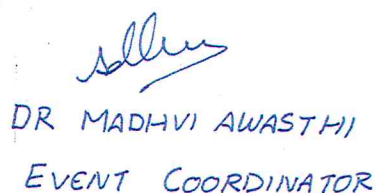 DR MADHVI AWASTHI
EVENT COORDINATOR